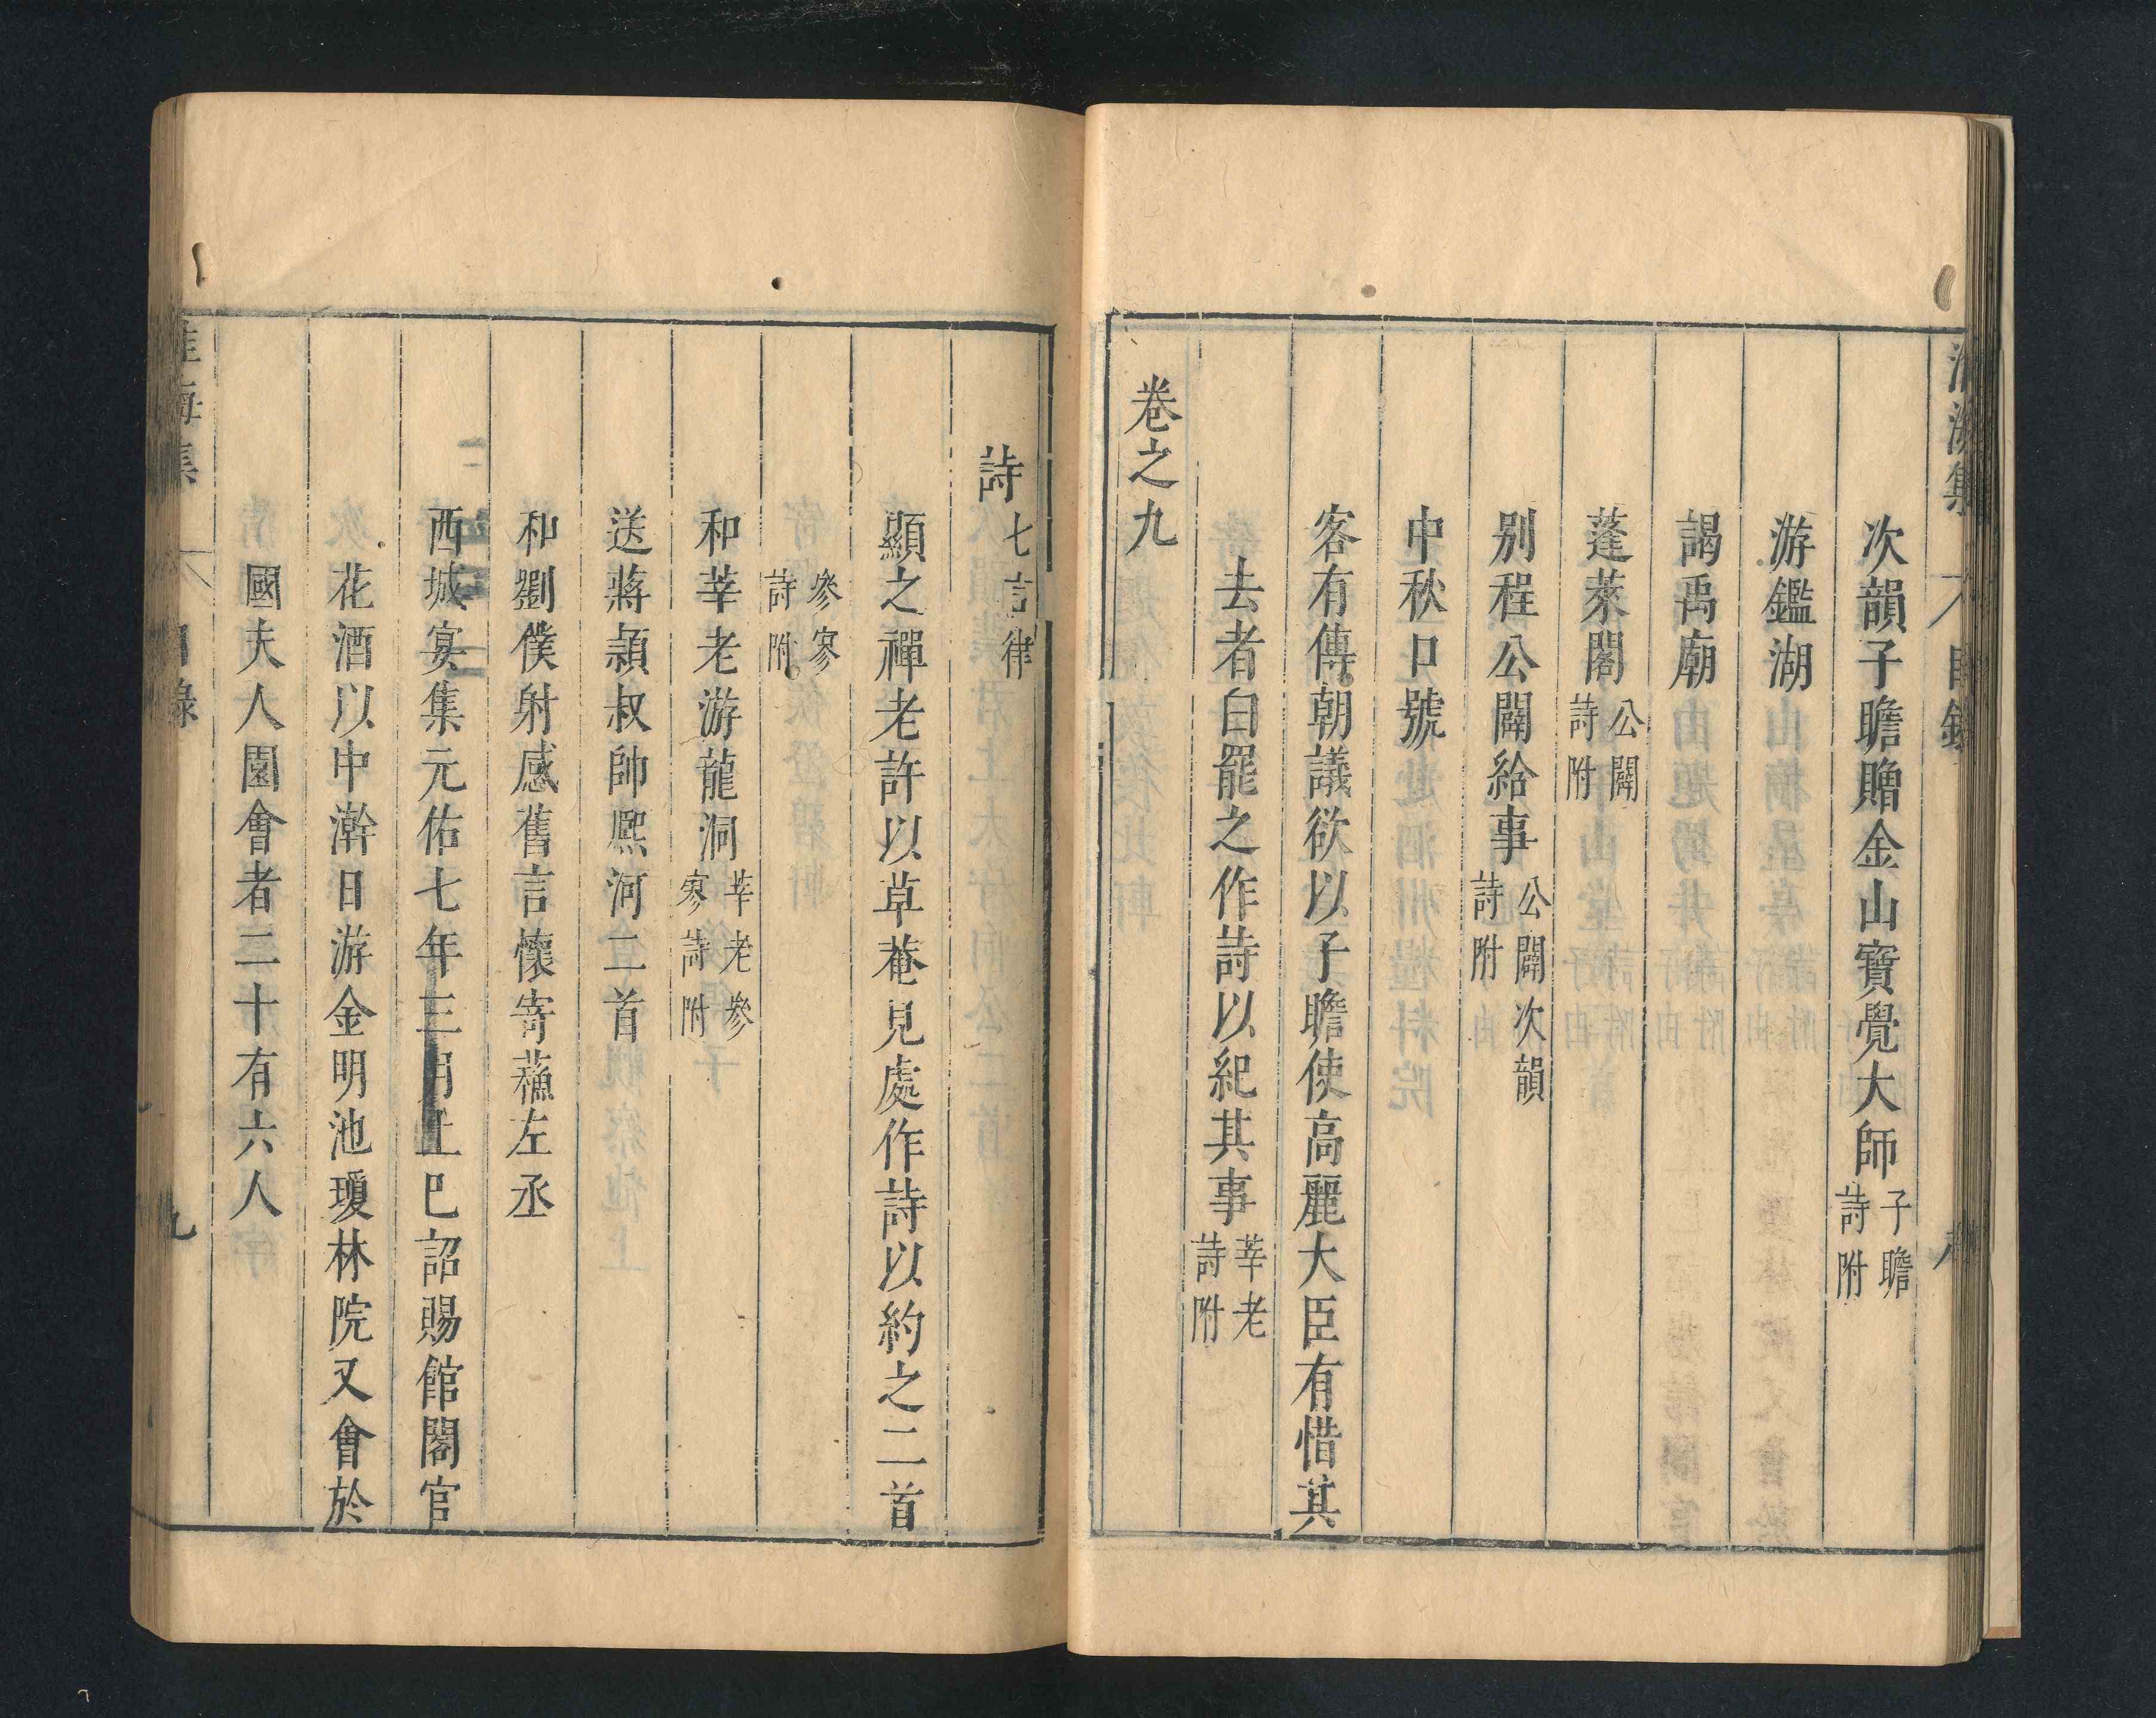 次韻子瞻贈金山寶覺大師子瞻詩附
游鑑湖
謁禹廟
蓬萊閣公闢詩附
別程公闢給事公闢次韻詩附
中秋口號
客有傳朝議欲以子瞻使高麗大臣有惜其
去者白罷之作詩以紀其事莘老詩附
卷之九
詩七言律
顯之禪老許以草菴見處作詩以約之二首
參寥詩附
和莘老游龍洞莘老參寥詩附
送蔣潁叔帥熈河二首
和劉僕射感舊言懷寄蘓左丞
西城宴集元佑七年三月上巳詔賜館閣官
花酒以中澣日游金明池瓊林院又會於
國夫人園會者二十有六人
淮海集 目錄 九